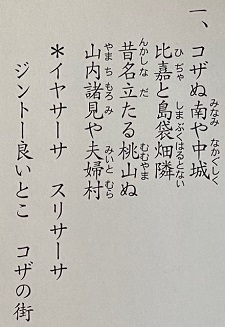 一、コザぬ南や中城
みなみ なかぐしく
比嘉と島袋畑隣
ひぢゃ しまぶくはるとない
昔名立たる桃山ぬ
んかしなだ むむやま
山内諸見や夫婦村
やまちもろみ みいとむら
＊イヤサーサ スリサーサ
ジントー良いとこ コザの街